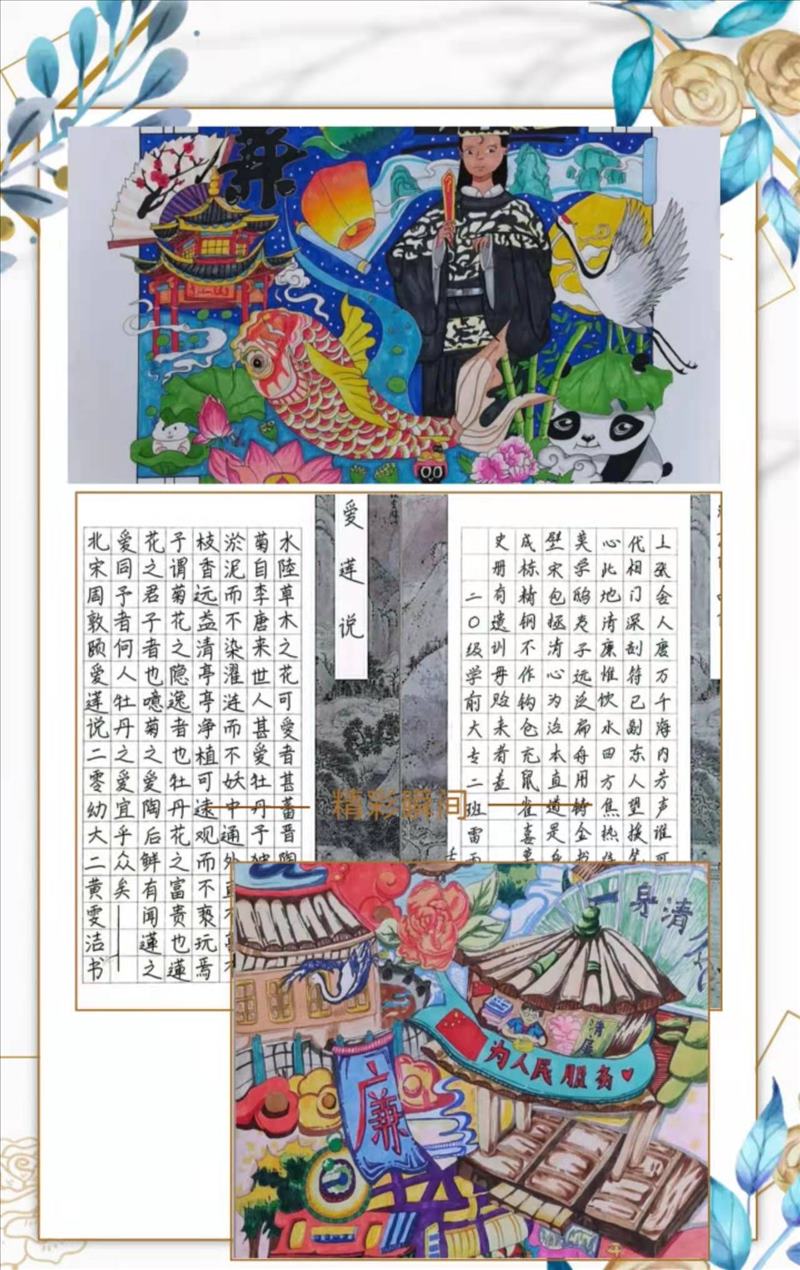 廉
水陸草木之花可愛者甚蕃晋陶
菊自李唐来世人甚愛牡丹予独
淤泥而不染濯涟而不妖中通外直不蔓
枝香远益清亭亭净植可远观而不亵玩焉
予谓菊花之隐逸者也牡丹花之富贵也蓮
花之君子者也噫菊之愛陶后鲜有闻蓮之
愛同予者何人牡丹之愛宜乎众矣
北宋周敦颐愛蓮说二零幼大二黄雯洁书
愛蓮说
唐万千海内芳声谁可
代相门深刻符已副东人望援笔
心此地清廉惟饮水四方焦热待
奚学鸱夷子远泛扁舟用铸金书
壁宋包拯清心为治本直道是身
成栋精钢不作钩仓充鼠雀喜草
史册有遗训毋贻来者羞
二〇级学前大专二班雷雨
精彩瞬间
一身清
为人民服务
廉